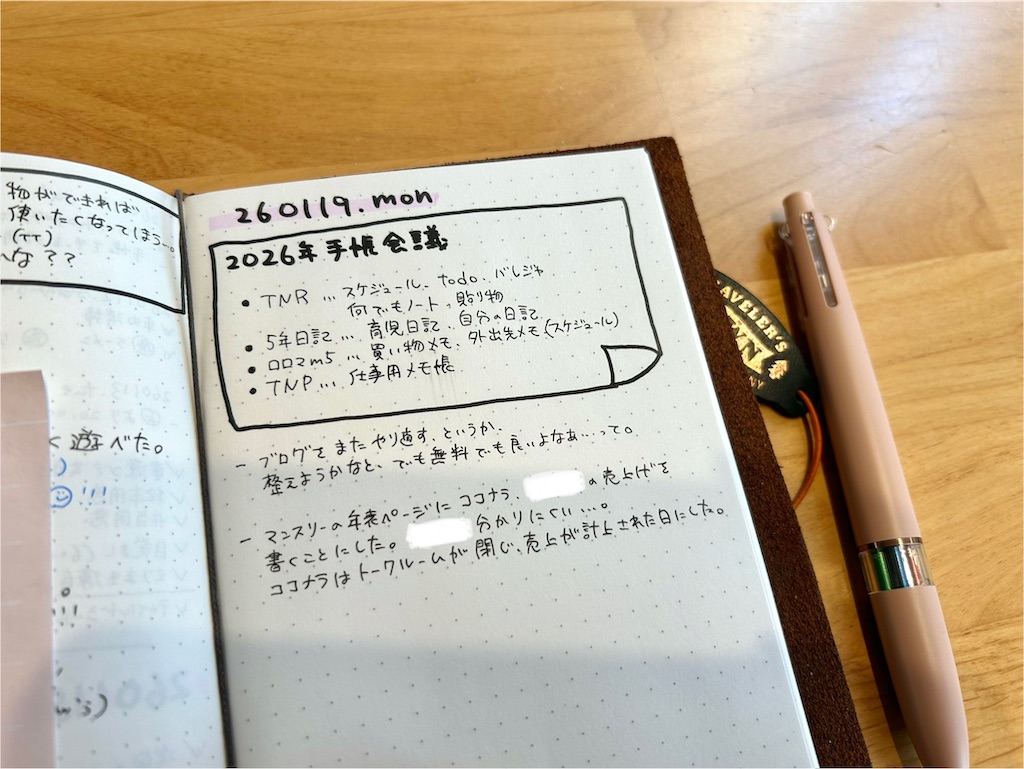 物ができれば
使いたくなってほうー。
(TT)
な??
く遊べた。
!!!
260119.mon
2026年手帳会議
• TNR … スケジュール、todo、バレジャ
何でもノート、貼り物
• 5年日記 … 育児日記、自分の日記
• ロロマm5 … 買い物メモ、外出先メモ(スケジュール)
• TNP … 仕事用メモ帳
- ブログをまたやり直す、というか、
整えようかなと、でも無料でも良いよなぁ…って。
- マンスリーの年表ページにココナラ、 の売上げを
書くことにした。 分かりにくい…。
ココナラはトークルームが閉じ、売上が計上された日にした。
TRAVELER'S